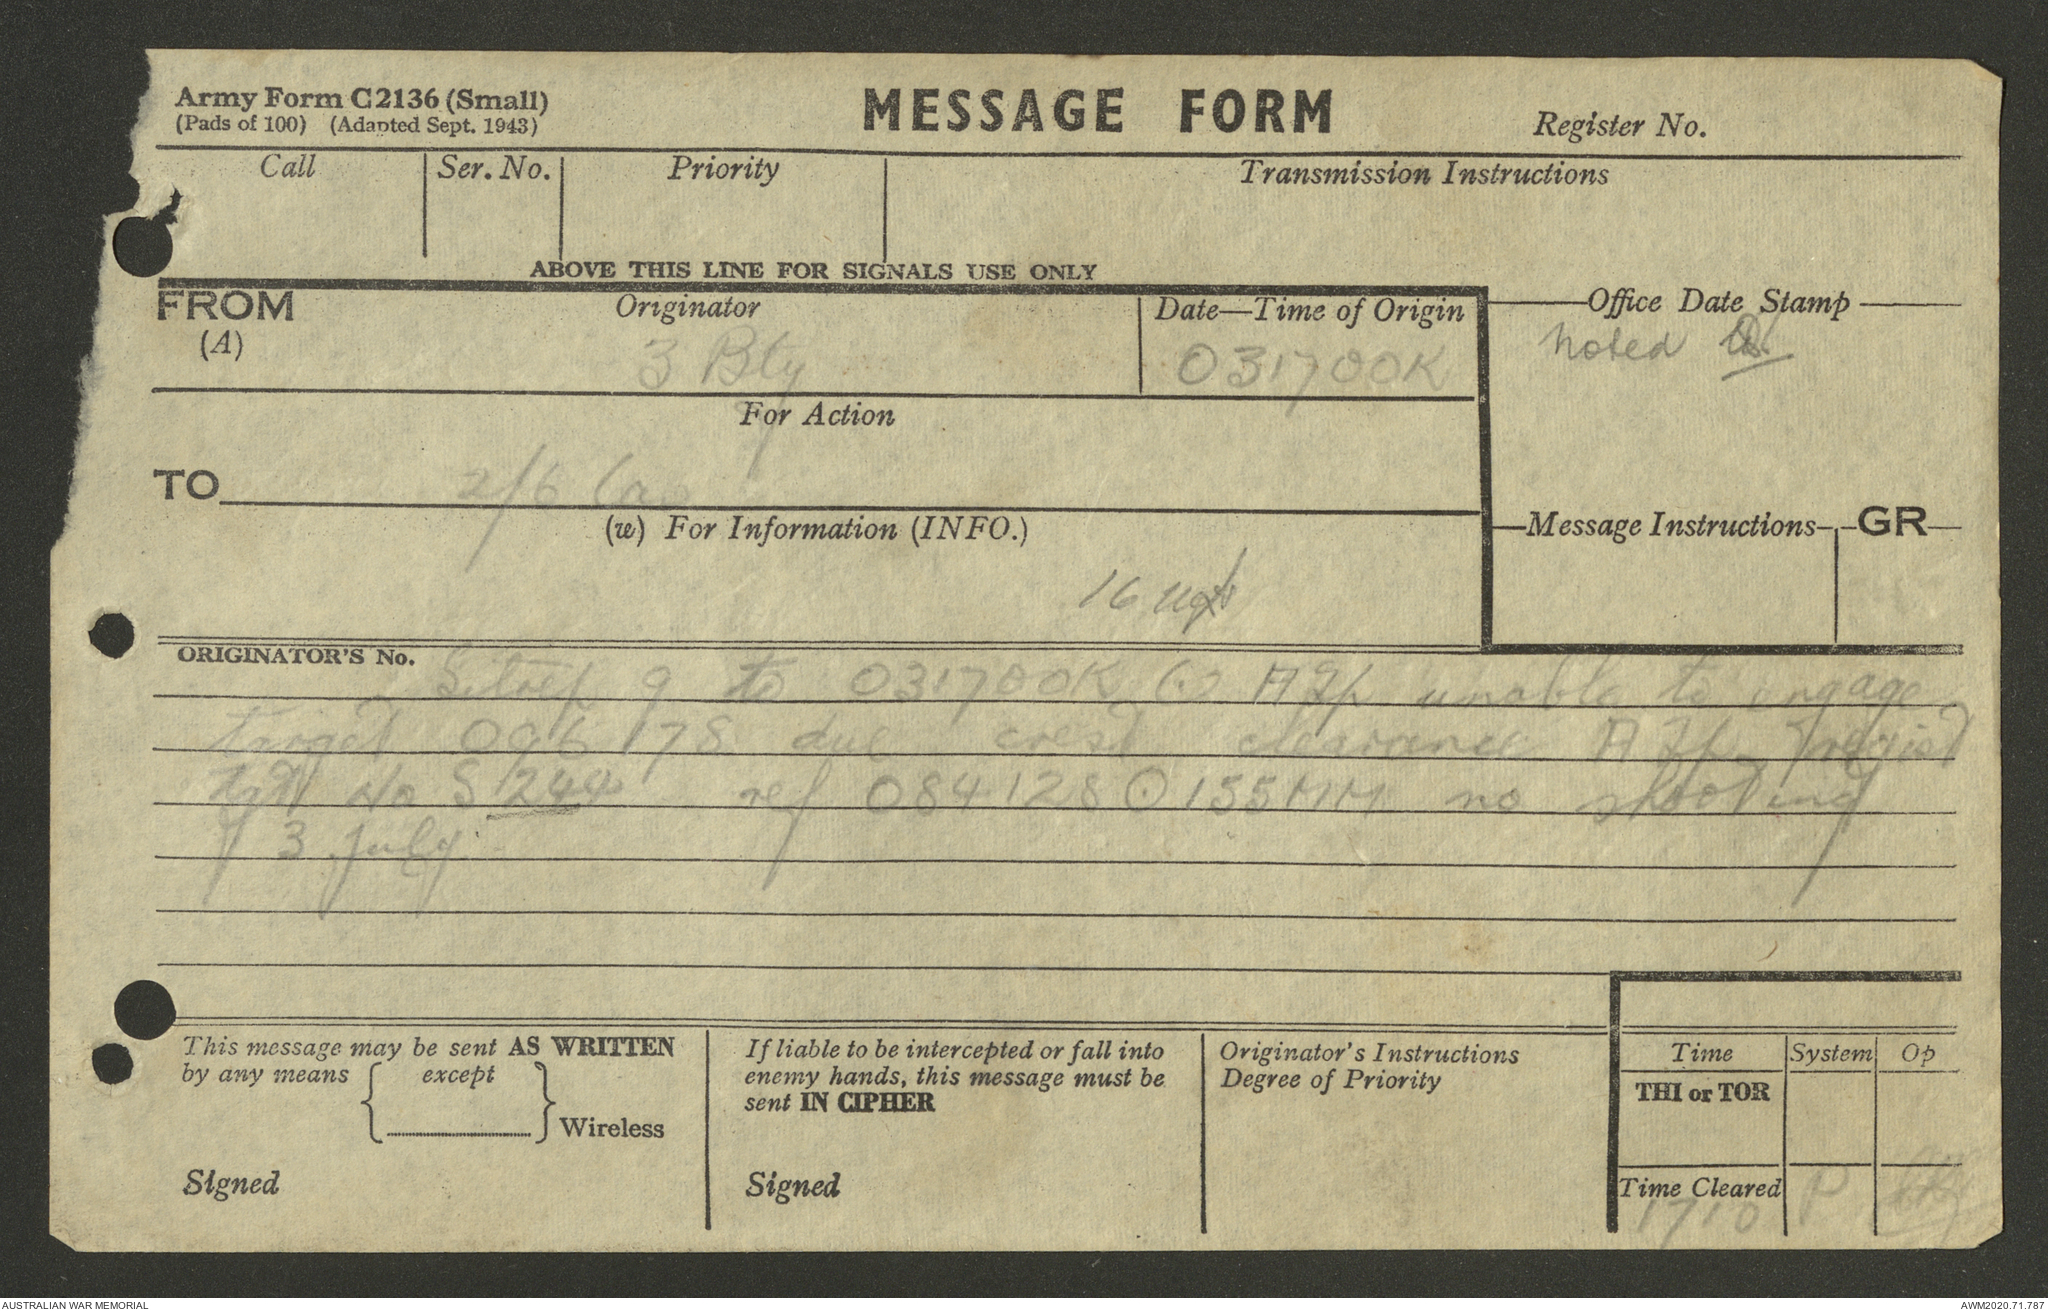 Army Form C2136 (Small)
(Pads of 100) (Adapted Sept. 1943)
MESSAGE FORM
Register No.
Call Ser. No. Priority Transmission Instructions
ABOVE THIS LINE FOR SIGNALS USE ONLY
FROM (A)
Originator
3 Bty
Date—Time of Origin
031700K
Office Date Stamp
noted
For Action
TO 2/6 Cav
(w) For Information (INFO.)
Message Instructions GR
16
ORIGINATOR'S No.
Sitrep 9 to 031700K (.) A Tp unable to engage
target 096178 due crest clearance A Tp regist
tgt No S 244 ref 084128 (.) 155MM no shooting
3 July
This message may be sent AS WRITTEN
by any means except
Wireless
Signed
If liable to be intercepted or fall into
enemy hands, this message must be
sent IN CIPHER
Signed
Originator's Instructions
Degree of Priority
Time System Op
THI or TOR
Time Cleared P
1710
AUSTRALIAN WAR MEMORIAL
AWM2020.71.787